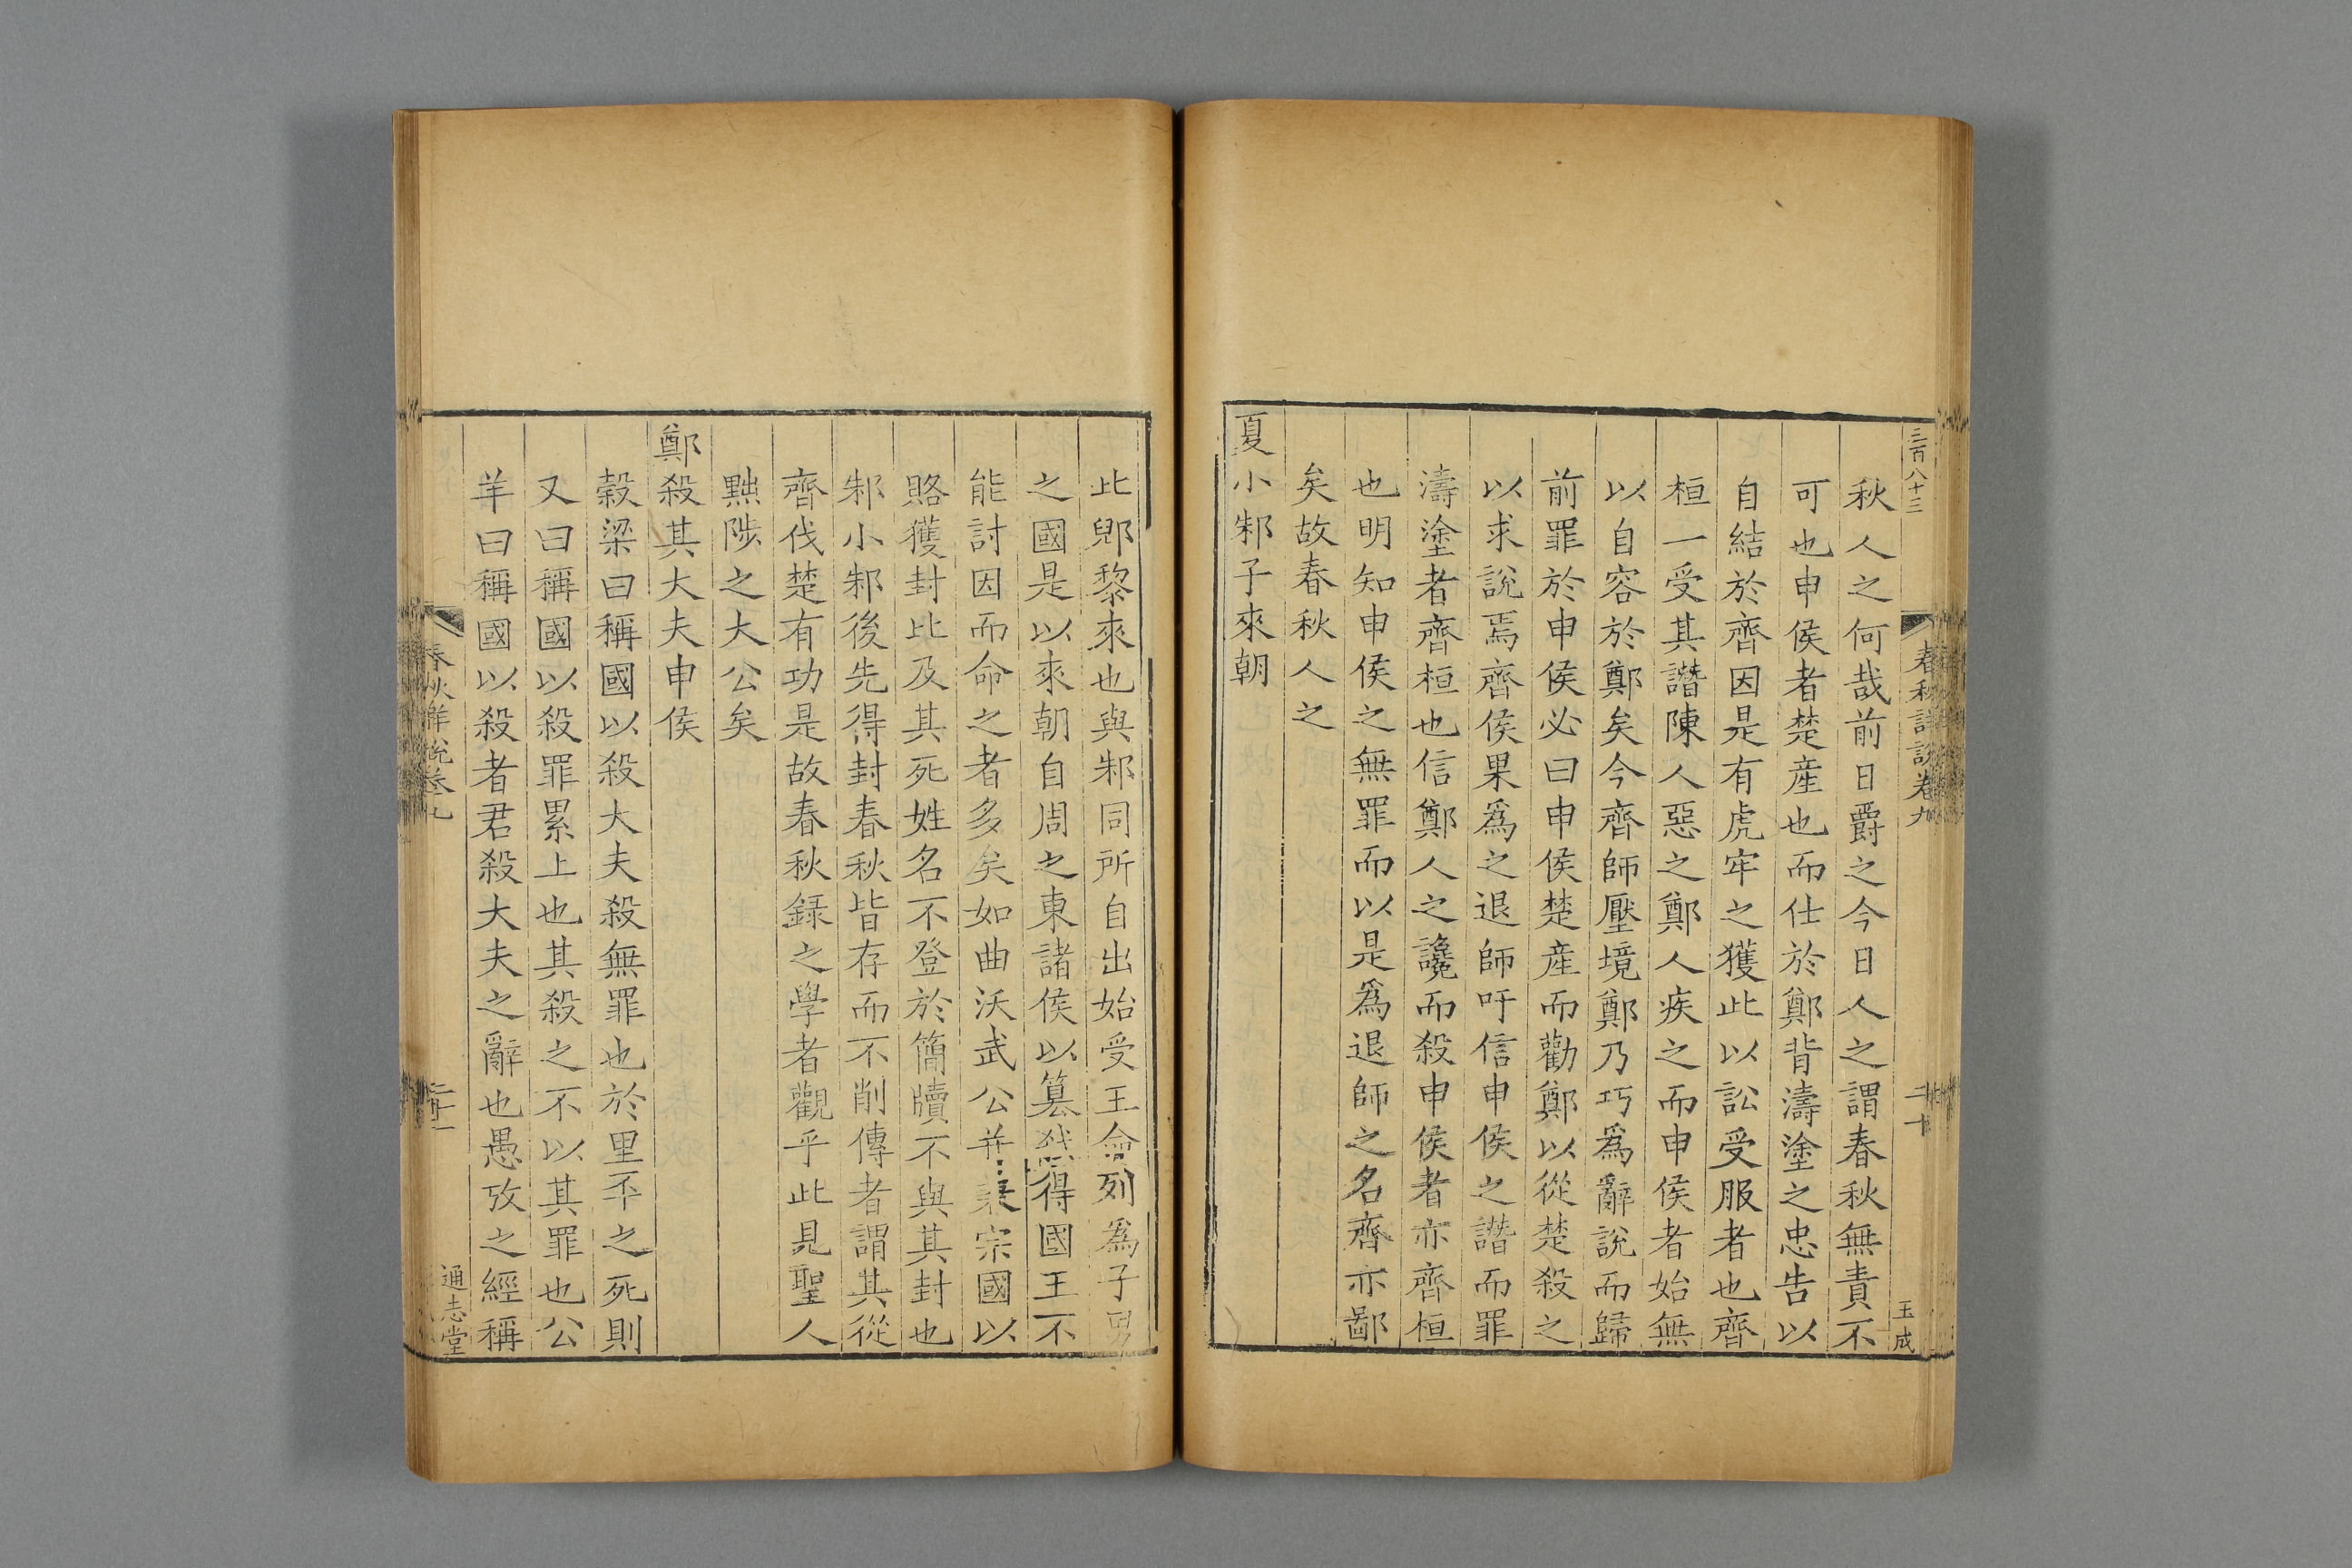 三百八十三
春秋詳說卷九
二十
玉成
秋人之何哉前日爵之今日人之謂春秋無責不
可也申侯者楚産也而仕於鄭背濤塗之忠告以
自結於齊因是有虎牢之獲此以訟受服者也齊
桓一受其譖陳人惡之鄭人疾之而申侯者始無
以自容於鄭矣今齊師壓境鄭乃巧爲辭說而歸
前罪於申侯必曰申侯楚産而勸鄭以從楚殺之
以求說焉齊侯果爲之退師吁信申侯之譖而罪
濤塗者齊桓也信鄭人之讒而殺申侯者亦齊桓
也明知申侯之無罪而以是爲退師之名齊亦鄙
矣故春秋人之
夏小邾子來朝
此郳黎來也與邾同所自出始受王命列爲子男
之國是以來朝自周之東諸侯以篡弑得國王不
能討因而命之者多矣如曲沃武公并宗國以
賂獲封比及其死姓名不登於簡牘不與其封也
邾小邾後先得封春秋皆存而不削傳者謂其從
齊伐楚有功是故春秋録之學者觀乎此見聖人
黜陟之大公矣
鄭殺其大夫申侯
榖梁曰稱國以殺大夫殺無罪也於里丕之死則
又曰稱國以殺罪累上也其殺之不以其罪也公
羊曰稱國以殺者君殺大夫之辭也愚攷之經稱
春秋詳說卷九
二十一
通志堂